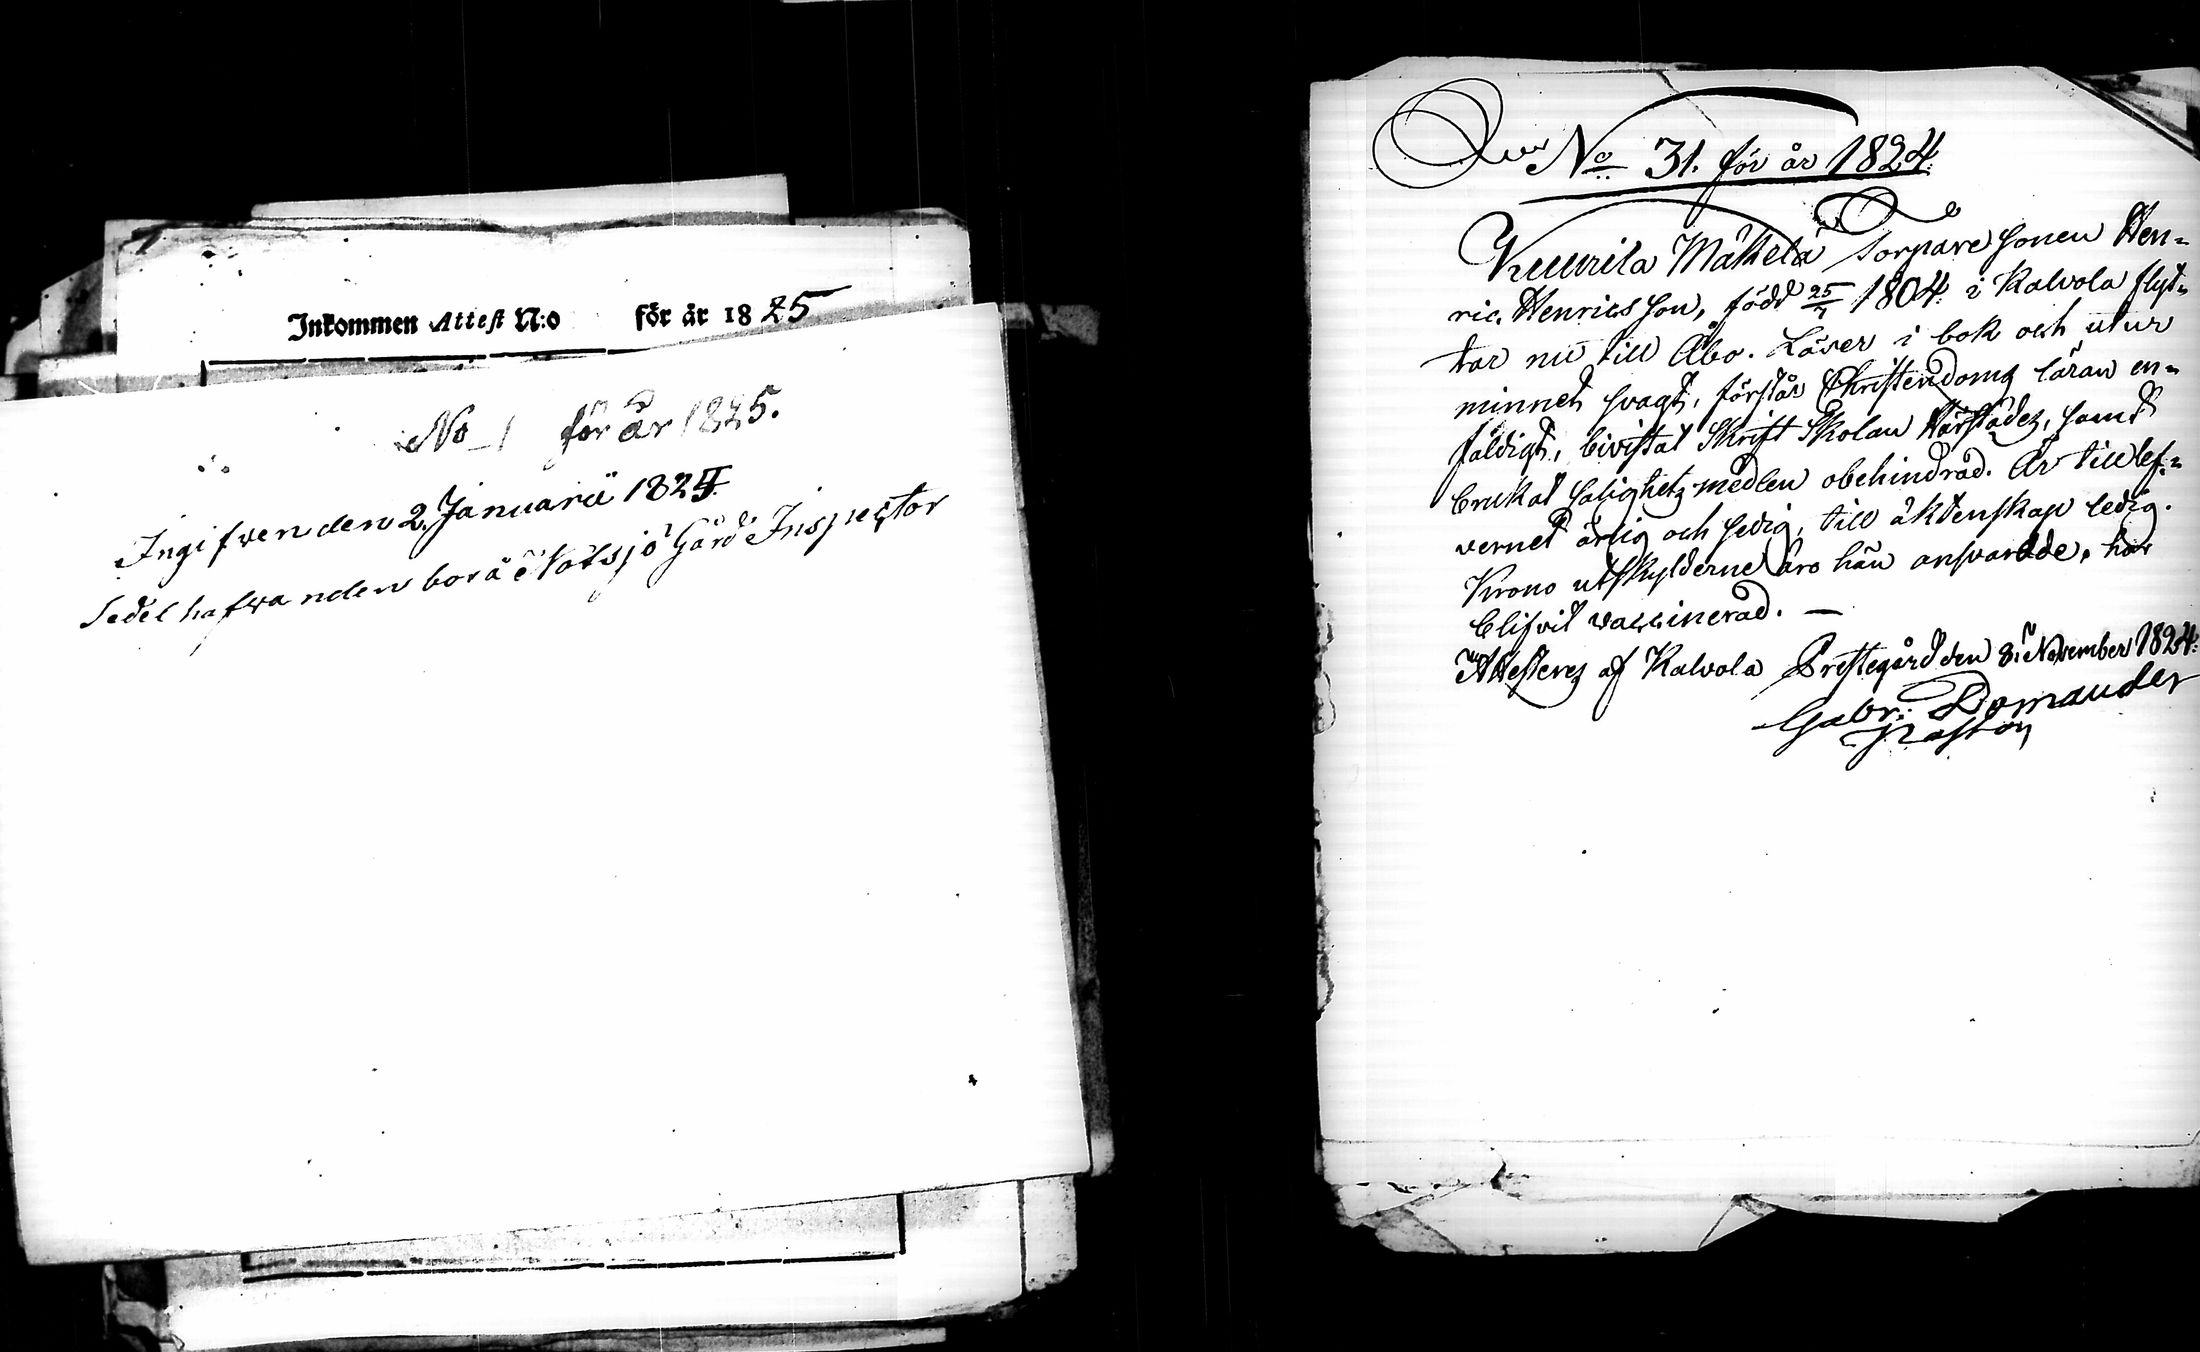 Inkommen Attest N:o för år 1825
No 1 för år 1825.
Ingifwen den 2. Januarii 1825.
Sedelhafwanden bor å Nötsjö Gård Inspector
No 31. för år 1824.
Kuurila Mäkelä Torpare sonen Hen=
ric Henricsson, född 25/7 1804. i Kalvola flyt=
tar nu till Åbo. Läser i bok och utur
minnet svagt, förstår Christendoms läran en=
faldigt, bivistat Skrift Skolan härstädes, samt
brukat salighets medlen obehindrad. Är till lef=
vernet ärlig och sedig, till äktenskap ledig.
Krono utskylderne äro här ansvarade, har
blifvit vaccinerad. —
Attesteres af Kalvola Prestegård den 8. November 1824.
Gabr: Domander
Pastor